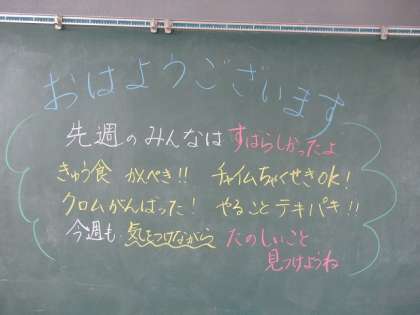 おはようございます
先週のみんなは すばらしかったよ
きゅう食 かんぺき!! チャイムちゃくせきOK!
クロムがんばった! やることテキパキ!!
今週も 気をつけながら たのしいこと
見つけようね